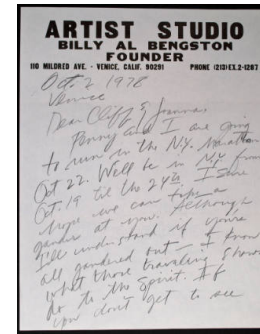 ARTIST STUDIO
BILLY AL BENGSTON
FOUNDER
110 MILDRED AVE. · VENICE, CALIF. 90291 PHONE (213) EX.2-1287
Oct. 2 1978
Venice
Dear Cliff & Joanna
Penny and I are going
to run in the N.Y. Marathon
Oct 22. We'll be in N.Y. from
Oct. 19 til the 24th. I sure
hope we can take a
gander at you. Although
I'll understand if you're
all gandered out — I know
what those traveling shows
do to the spirit. If
you don't get to see